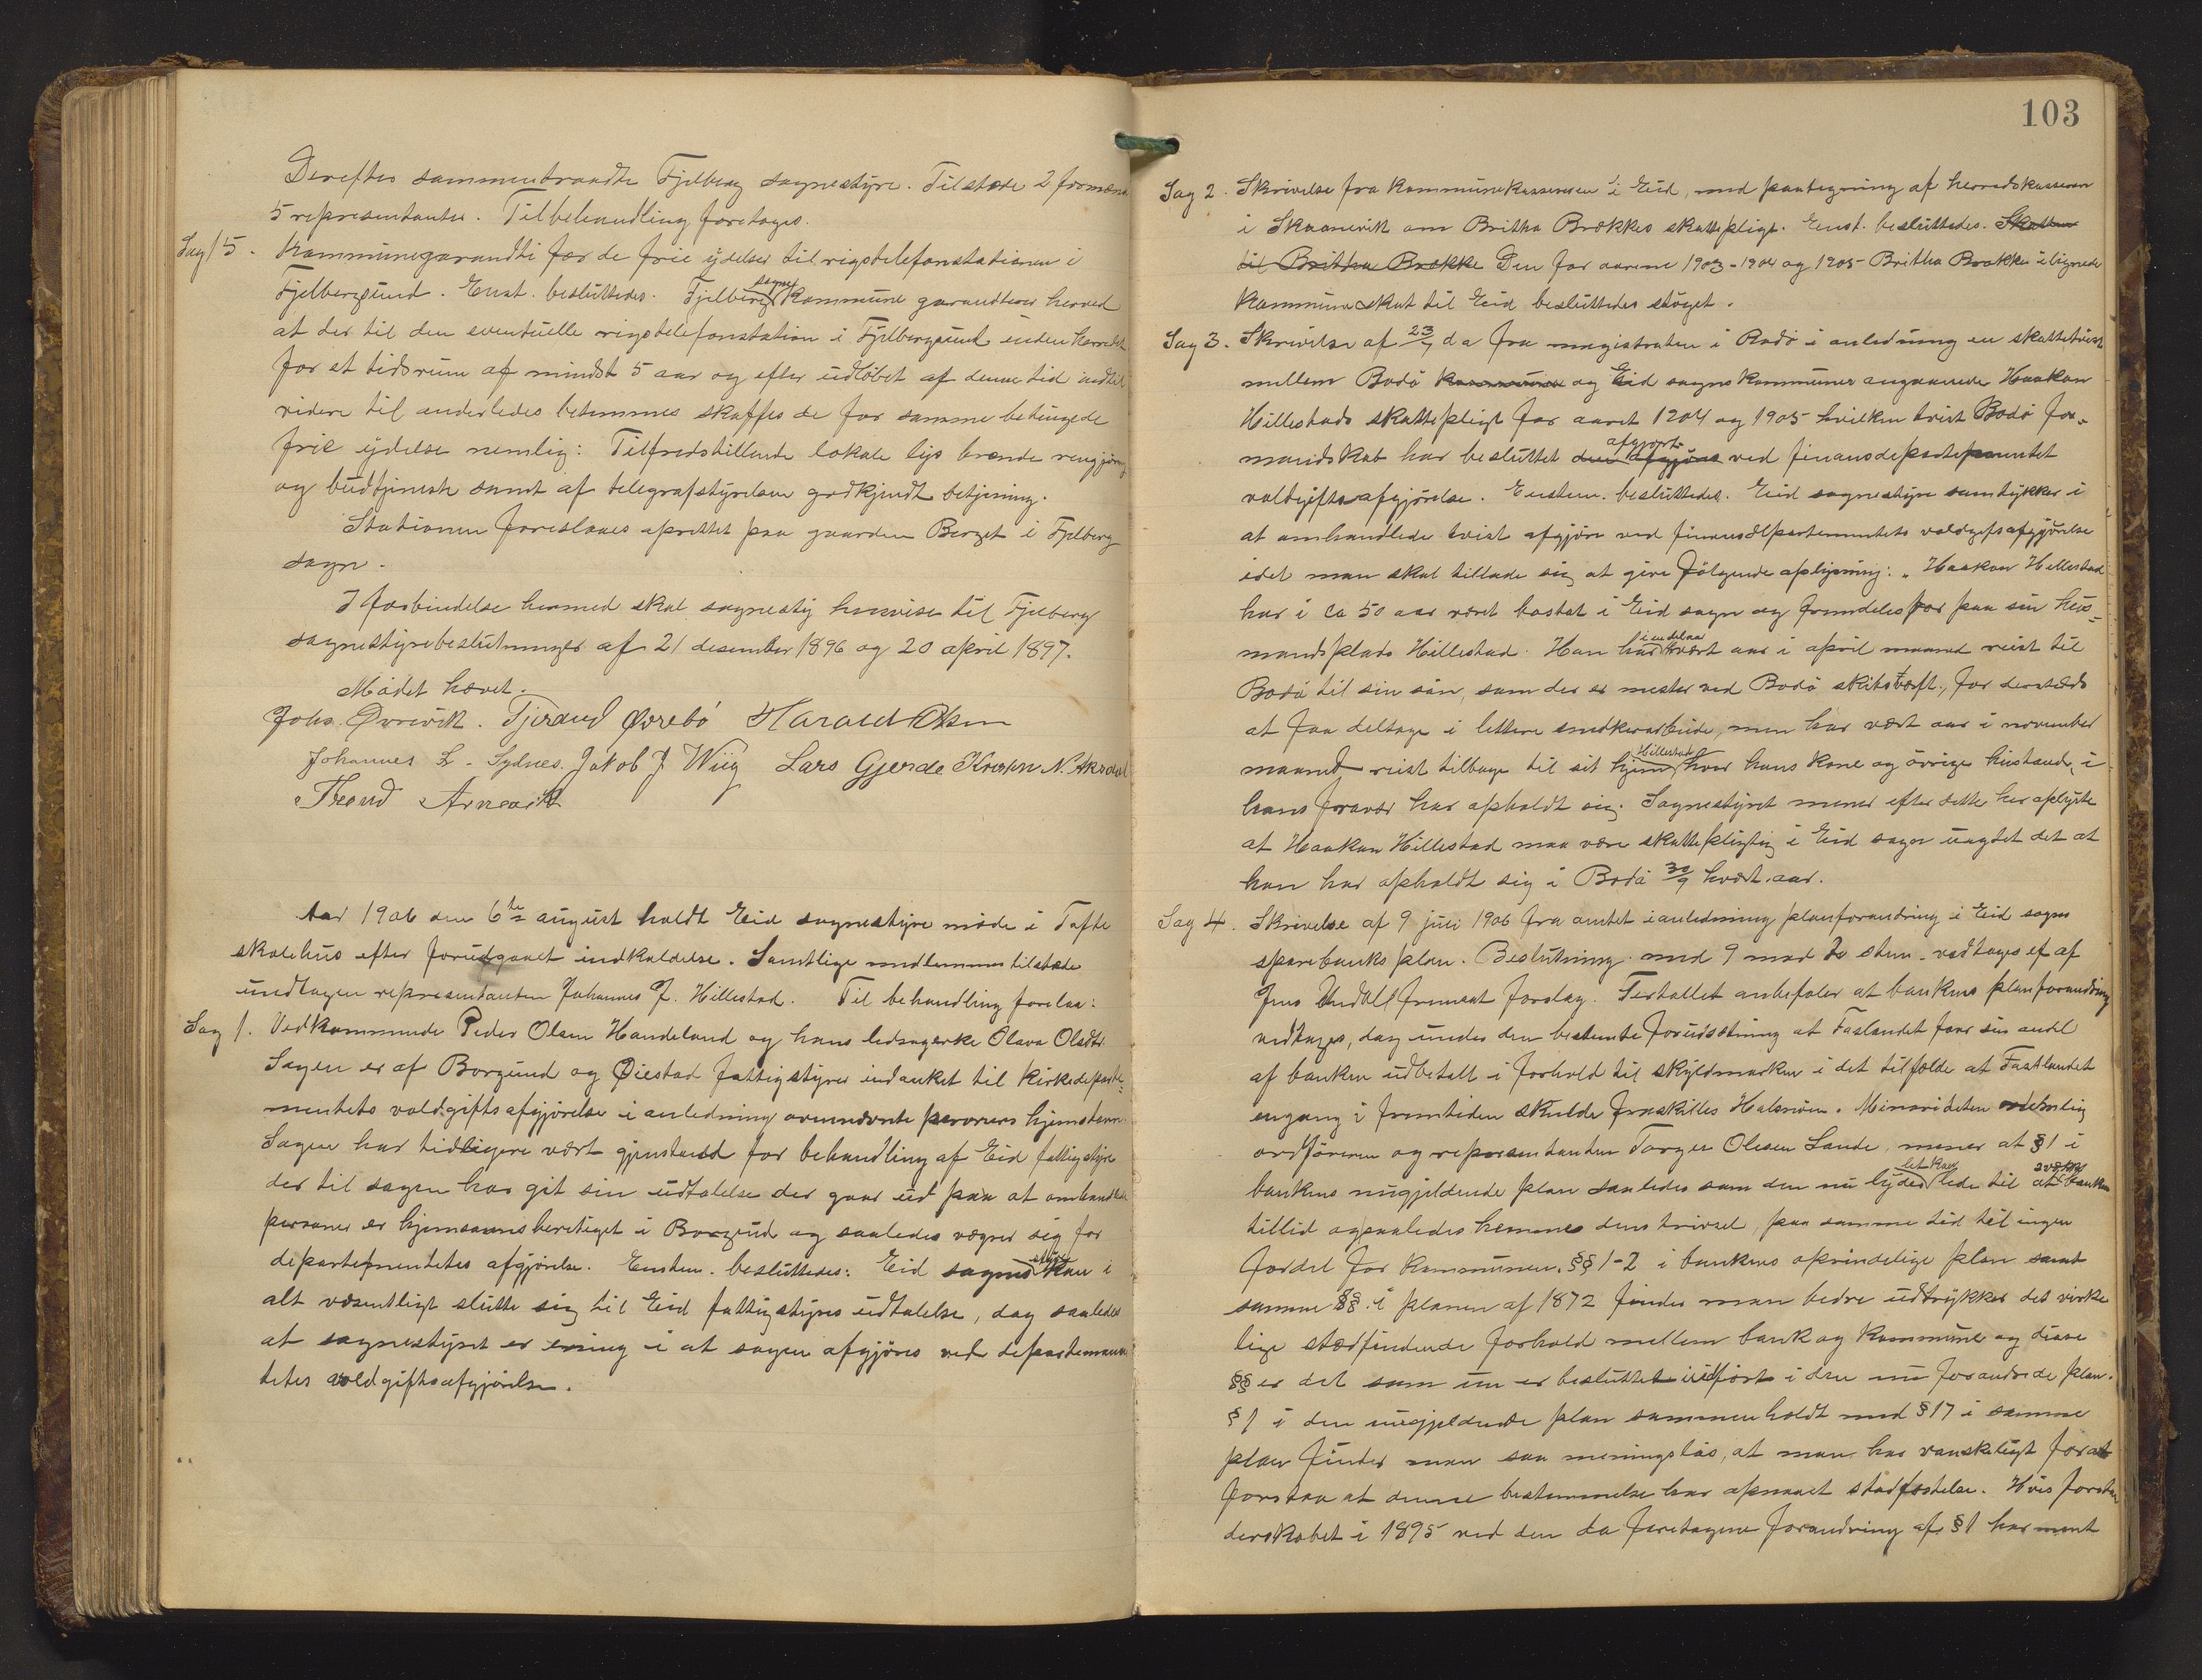 Derefter sammentraadte Fjelberg sognestyre. Tilstede 2 formænd
5 representanter. Til behandling foretoges.
Sag 15. Kommunegarandti for de frie ydelser til rigstelefonstationen i
Fjelbergsund. Enst. besluttedes. Fjelberg sogns kommune garandterer herved
at der til den eventuelle rigstelefonstation i Fjelbergsund inden Herredet
for et tidsrum af mindst 5 aar og efter udløbet af denne tid indtil
videre til anderledes bestemmes skaffes de for samme betingede
frie ydelse nemlig: Tilfredstillende lokale lys brænde rengjøring
og budtjeneste samt af telegrafstyrelsen godkjendt betjening.
Stationen foreslaaes oprettet paa gaarden Berget i Fjelberg
sogn.
I forbindelse hermed skal sognesty henvise til Fjelberg
sognestyrebeslutninger af 21 desember 1896 og 20 april 1897.
Mødet hævet.
Johs. Øvrevik. Tjerand Øvrebø Harald Olsen
Johannes L. Sydnes. Jakob J Wiig Lars Gjerde N. Akredal
Trond Arnevik
Aar 1906 den 6te august holdt Eid sognestyre møde i Tofte
skolehus efter forudgaaet indkaldelse. Samtlige medlemmer tilstede
undtagen representanten Johannes J. Hillestad. Til behandling forelaa:
Sag 1. Vedkommende Peder Olsen Handeland og hans ledsagerske Olava Olsdtr.
Sagen er af Borgund og Øiestad fattigstyrer indanket til kirkedeparte-
mentets voldgiftsafgjørelse i anledning ovennævnte personers hjemstavn.
Sagen har tidligere vært gjenstand for behandling af Eid fattigstyre
der til sagen har git sin udtalelse der gaar ud paa at omhandlede
personer er hjemstavnsberettiget i Borgund og saaledes vægrer sig for
departementets afgjørelse. Enstem. besluttedes: Eid sogne styre kan i
alt væsentligt slutte sig til Eid fattigstyres udtalelse, dog saaledes
at sognestyret er ening i at sagen afgjøres ved departemen
tets voldgiftsafgjørelse.
103
Sag 2. Skrivelse fra kommunekassereren i Eid, med paategning af herredskasseren
i Skaanevik om Britha Brækkes skattepligt. Enst. besluttedes. Skatten
til Britha Brække Den for aarene 1903-1904 og 1905 Britha Brække ilignede
kommuneskat til Eid besluttedes sløiget.
Sag 3. Skrivelse af 23/7 d a fra magistraten i Bodø i anledning en skattetvist
mellem Bodø kommune og Eid sogns kommuner angaaende Haakon
Hillestads skattepligt for aaret 1904 og 1905 hvilken tvist Bodø for-
mandskab har besluttet den afgjøres afgjort ved finansdepartementet
voldgiftsafgjørelse. Enstem. besluttedes. Eid sognestyre samtykker i
at omhandlede tvist afgjøres ved finansdepartementets voldgiftsafgjørelse
idet man skal tillade sig at give følgende oplysning: "Haakon Hillestad
har i ca 50 aar været bosat i Eid sogn og fremdeles bor paa sin hus-
mandsplads Hillestad. Han har i endel aar hvert aar i april maaned reist til
Bodø til sin søn, som der er mester ved Bodø skibsværft, for dersteds
at faa deltage i lettere snedkerarbeide, men har vært aar i november
maaned reist tilbage til sit hjem Hillestad hvor hans kone og øvrige husstand i
hans fravær har opholdt sig. Sognestyret mener efter dette her oplyste
at Haakon Hillestad maa være skattepligtig i Eid sogn uagtet det at
han har opholdt sig i Bodø 30/9 hvert aar.
Sag 4. Skrivelse af 9 juli 1906 fra amtet i anledning planforandring i Eid sogns
sparebanks plan. Beslutning. med 9 mod 2 stem. vedtoges et af
Jens Undal fremsat forslag. Flertallet anbefaler at bankens planforandring
vedtages, dog under den bestemte forudsætning at Fastlandet faar sin andel
af banken udbetalt i forhold til skyldmarken i det tilfælde at Fastlandet
engang i fremtiden skulde fraskilles Halsnøen. Minoriteten nemlig
ordføreren og representanten Torger Olesen Sande, mener at § 1 i
bankens nugjeldende plan saaledes som den nu lyder let kan lede til at svække banken
tillid og saaledes hemmes dens trivsel, paa samme tid til ingen
fordel for kommunen. §§ 1-2 i bankens oprindelige plan samt
samme §§ i planen af 1872 findes man bedre udtrykker det virke
lige stedfindende forhold mellem bank og kommune og disse
§§ er det som nu er besluttet indført i den nu forandrede plan.
§ 1 i den nugjeldende plan sammenholdt med § 17 i samme
plan finder man saa meningsløs, at man har vanskeligt for at
forstaa at denne bestemmelse har opnaaet stadfæstelse. Hvis forstan
derskabet i 1895 ved den da foretagene forandring af § 1 har ment